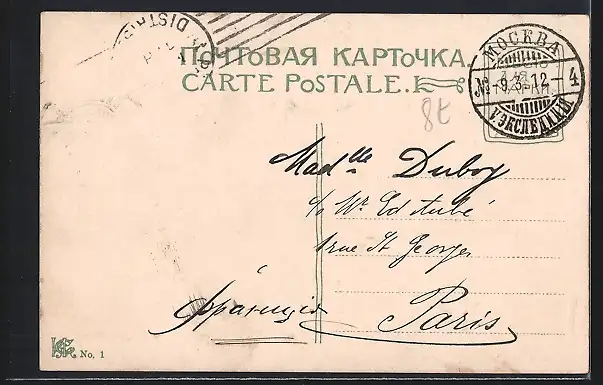 DISTRIB
ПОЧТОВАЯ КАРТОЧКА.
CARTE POSTALE.
МОСКВА
-9.3.12-4
V. ЭКСПЕДИЦІЯ
8t
Madlle Duboy
c/o Mr Ed Aubé
1 rue St George
Франція Paris
No. 1